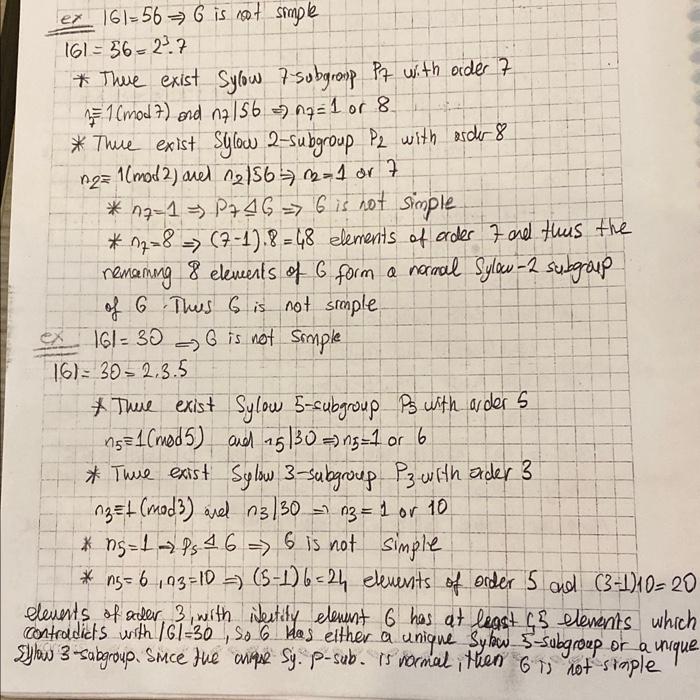 ex |G|=56 ⇒ G is not simple
|G| = 56 = 2³.7
* There exist Sylow 7-subgroup P₇ with order 7
n₇≡1(mod7) and n₇|56 ⇒ n₇=1 or 8
* There exist Sylow 2-subgroup P₂ with order 8
n₂≡1(mod2) and n₂|56 ⇒ n₂=1 or 7
* n₇=1 ⇒ P₇⊴G ⇒ G is not simple
* n₇=8 ⇒ (7-1).8=48 elements of order 7 and thus the
remaining 8 elements of G form a normal Sylow-2 subgroup
of G. Thus G is not simple
ex |G|=30 ⇒ G is not simple
|G|= 30=2.3.5
* There exist Sylow 5-subgroup P₅ with order 5
n₅≡1(mod5) and n₅|30 ⇒ n₅=1 or 6
* There exist Sylow 3-subgroup P₃ with order 3
n₃≡1(mod3) and n₃|30 ⇒ n₃=1 or 10
* n₅=1 ⇒ P₅⊴G ⇒ G is not simple
* n₅=6, n₃=10 ⇒ (5-1)6=24 elements of order 5 and (3-1)10=20
elements of order 3, with identity element G has at least 45 elements which
contraldicts with |G|=30, so G has either a unique Sylow 5-subgroup or a unique
Sylow 3-subgroup. Since the unique Sy. p-sub. is normal, then G is not simple